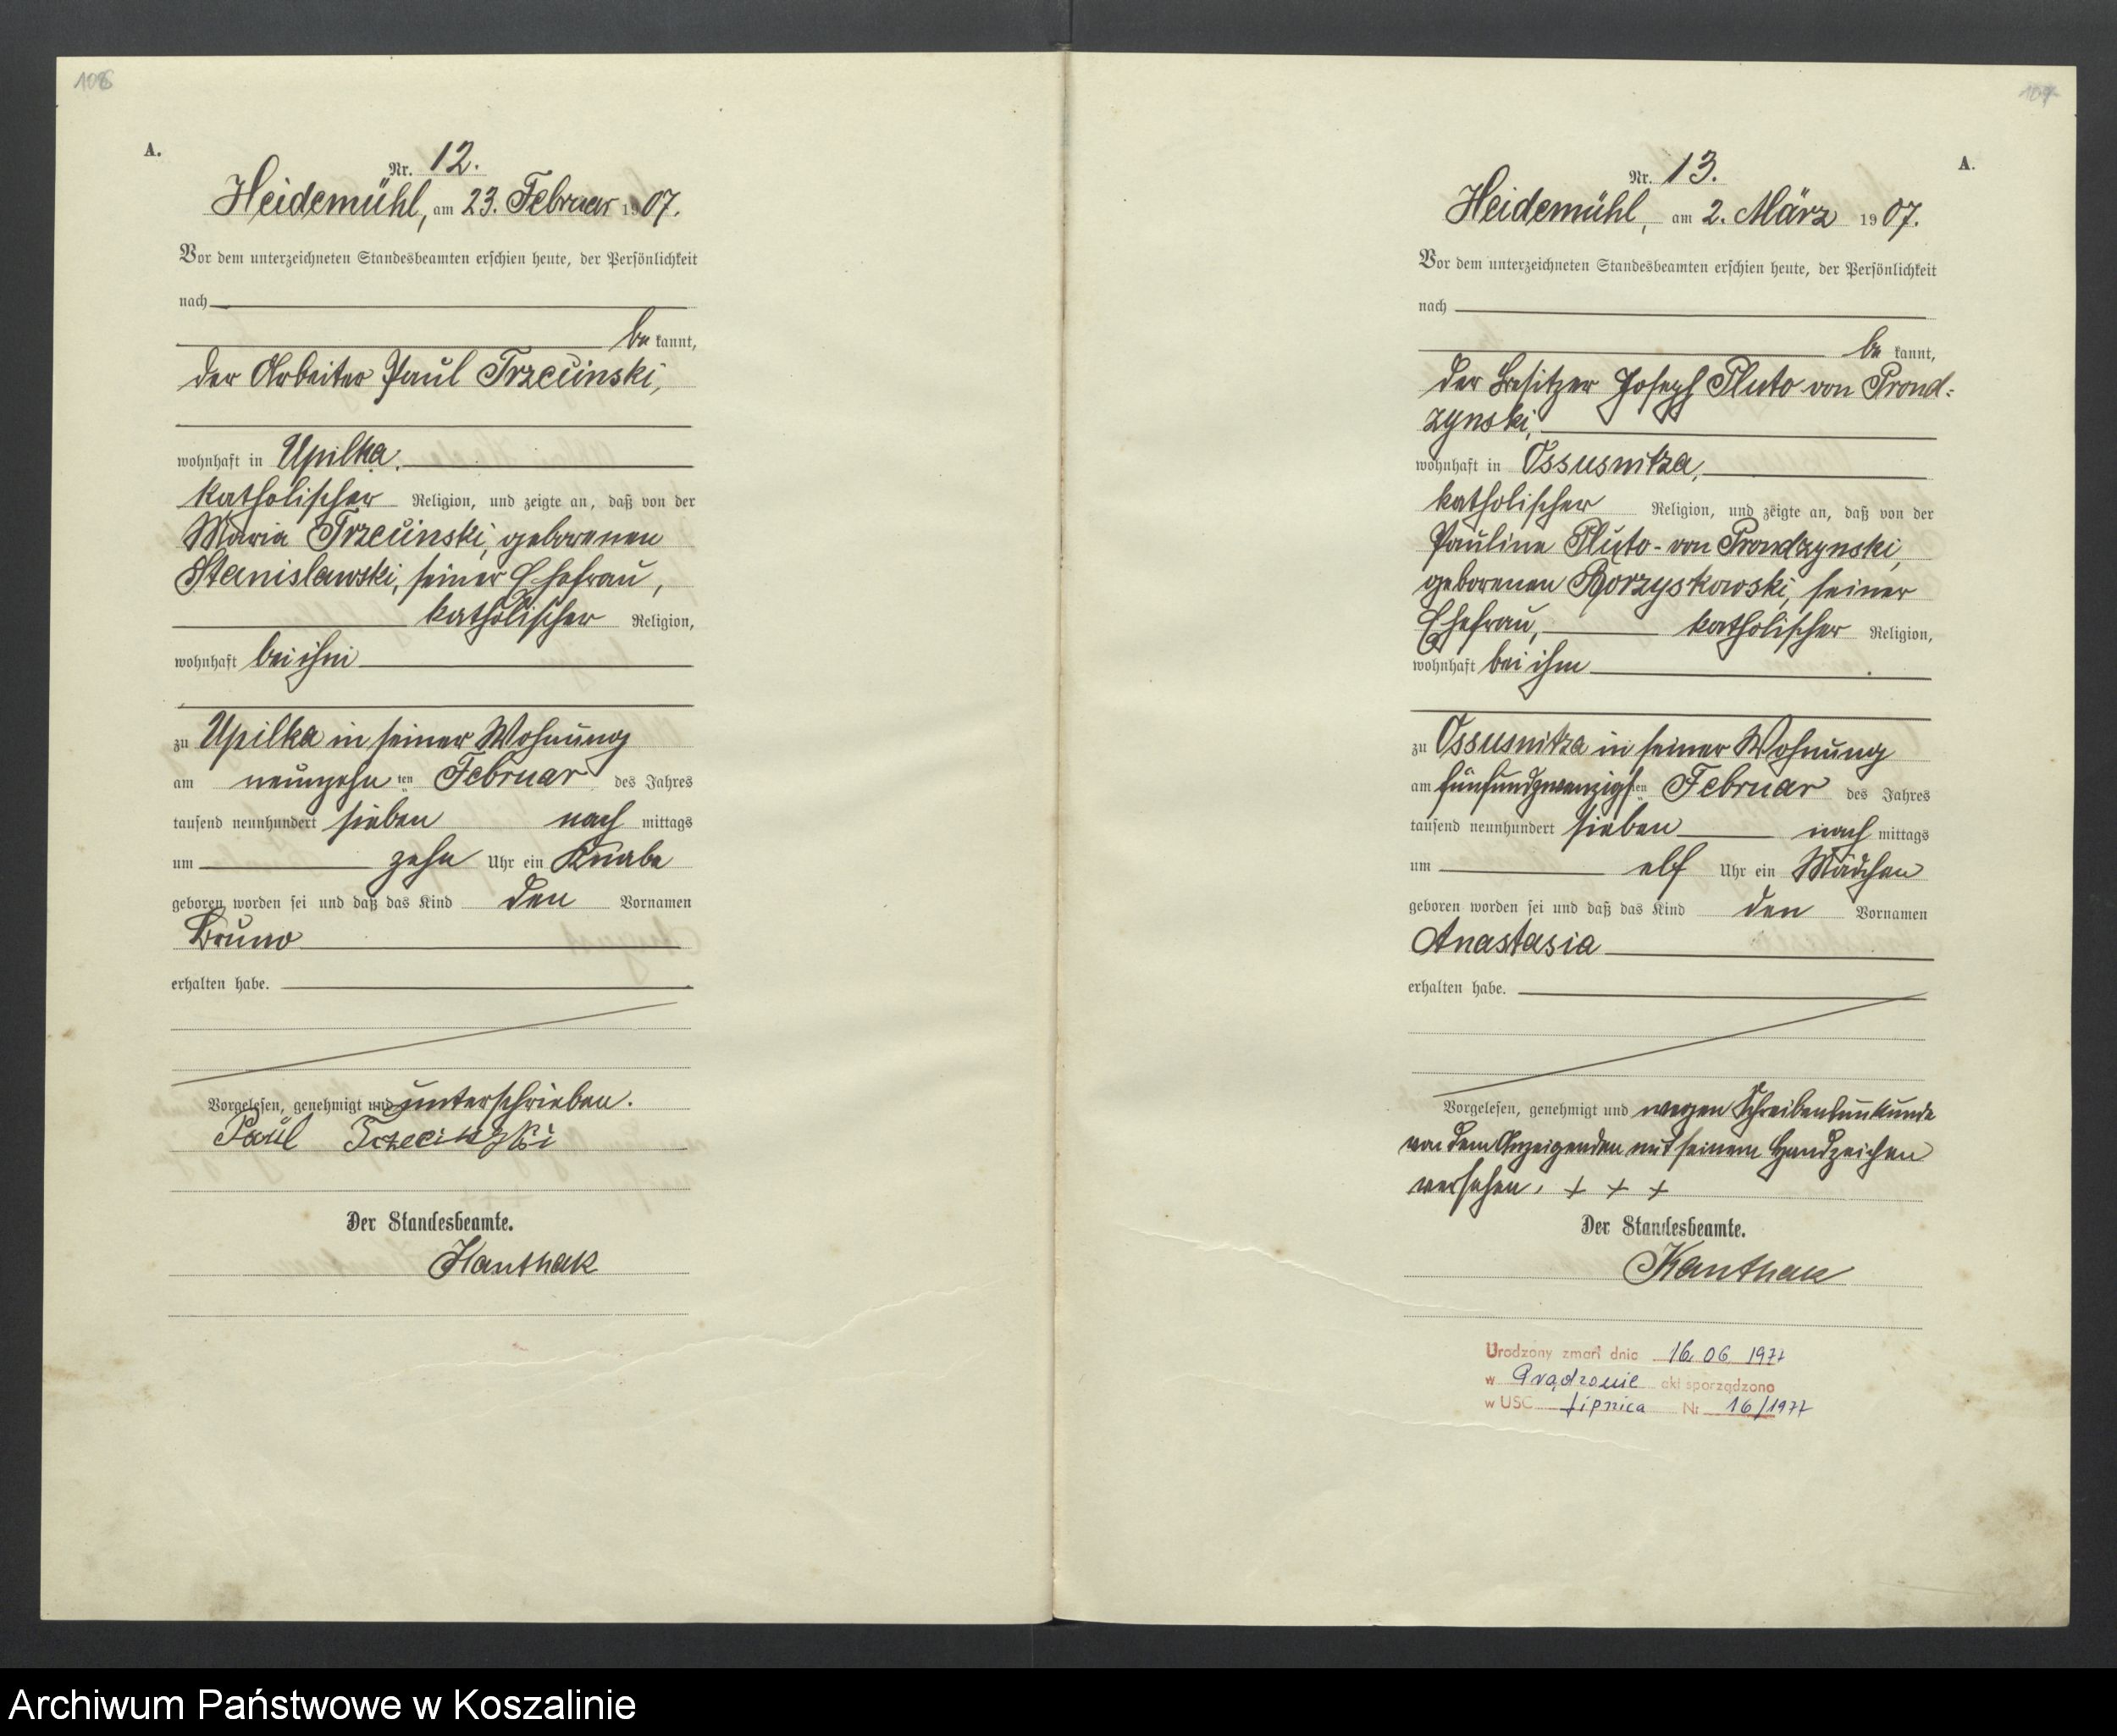 106
A.
Nr. 12.
Heidemühl, am 23. Februar 1907.
Vor dem unterzeichneten Standesbeamten erschien heute, der Persönlichkeit
nach
be kannt,
der Arbeiter Paul Trzecinski,
wohnhaft in Upilka.
katholischer Religion, und zeigte an, daß von der
Maria Trzecinski, geborenen
Stanislawski, seiner Ehefrau,
katholischer Religion,
wohnhaft bei ihm
zu Upilka in seiner Wohnung
am neunzehnten Februar des Jahres
tausend neunhundert sieben nach mittags
um zehn Uhr ein Knabe
geboren worden sei und daß das Kind den Vornamen
Bruno
erhalten habe.
Vorgelesen, genehmigt und unterschrieben.
Paul Trzecinski
Der Standesbeamte.
Kanthak
A.
Nr. 13.
Heidemühl, am 2. März 1907.
Vor dem unterzeichneten Standesbeamten erschien heute, der Persönlichkeit
nach
be kannt,
der Besitzer Joseph Pluto von Prond=
zynski,
wohnhaft in Ossusnitza,
katholischer Religion, und zeigte an, daß von der
Pauline Pluto-von Prondzynski,
geborenen Borzyskowski, seiner
Ehefrau, katholischer Religion,
wohnhaft bei ihm
zu Ossusnitza in seiner Wohnung
am fünfundzwanzigsten Februar des Jahres
tausend neunhundert sieben nach mittags
um elf Uhr ein Mädchen
geboren worden sei und daß das Kind den Vornamen
Anastasia
erhalten habe.
Vorgelesen, genehmigt und wegen Schreibensunkunde
von dem Anzeigenden mit seinem Handzeichen
versehen. + + +
Der Standesbeamte.
Kanthak
Urodzony zmarł dnia 16.06 1977
w Prądzonie akt sporządzono
w USC Lipnica Nr 16/1977
Archiwum Państwowe w Koszalinie